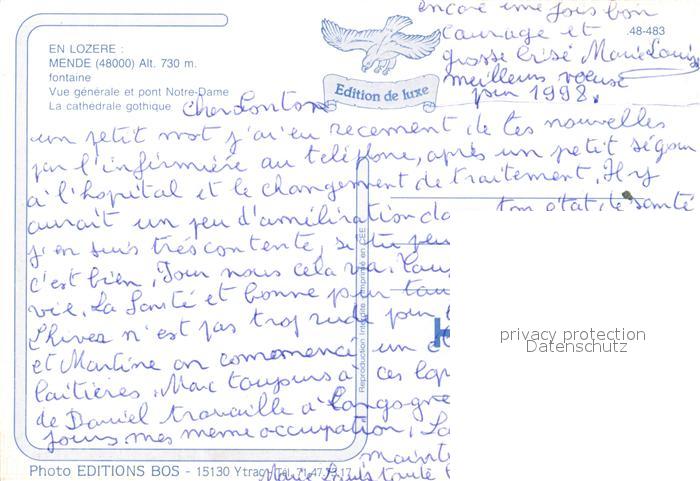 encore une fois bon
courage et
grosse
Marie Louise
meilleurs voeuse
pur 1998.
48-483
EN LOZERE :
MENDE (48000) Alt. 730 m.
fontaine
Vue générale et pont Notre-Dame
La cathédrale gothique
Edition de luxe
Cher Tonton
un petit mot j'ai eu recement de tes nouvelles
par l'infirmière au teléfone, après un petit séjour
à l'hopital et le changement de traitement. Il y
aurait un peu d'améliration da
ton état de santé
j'en suis trés contente, si tu peu
c'est bien. Pour nous cela va.
vie. La Santé et bonne pur tou
L'hiver n'est pas trop rude pur
et Martine on commencé un
laitières. Marc toujours a ces
de Daniel travaille a Langogne
jours mes meme occupation. La
mainte
Marie Louis toute
Reproduction interdite - Imprimé en CEE
privacy protection
Datenschutz
Photo EDITIONS BOS - 15130 Ytrac Tél. 71.47.